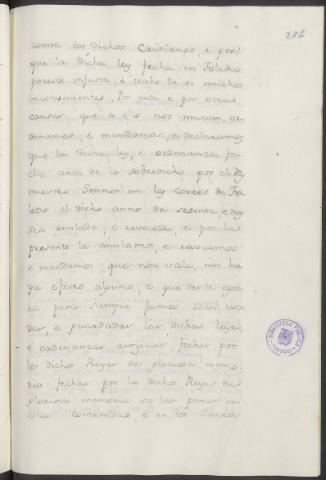 286
contra los dichos Cautivamos, é por
que la dicha ley fecha en Toledo
parece injusta, é trahe de si muchos
inconvenientes, Por ende, é por otras
causas, que a ello nos mueven, or
denamos, é mandamos, é declaramos
que la dicha ley, é ordenanza fe
cha cerca de lo sobredicho por el Rey
nuestro Sennor en las cortes de To
ledo el dicho anno de sesenta, é dos
sea anulada, é revocada, é por las
presente la anulamos, é revocamos
é mandamos, que non vala, nin ha
ya efecto alguno, é que de te aqui
para siempre jamas sean usa
das, é guardadas las dichas leyes,
é ordenanzas antiguas fechas por
los dichos Reyes de gloriosa memo
ria fechas por los dichos Reyes de
gloriosa memoria so las penas en
ellas contenidas, é en los Sacros
BIBLIOTECA PUBLICA
TOLEDO